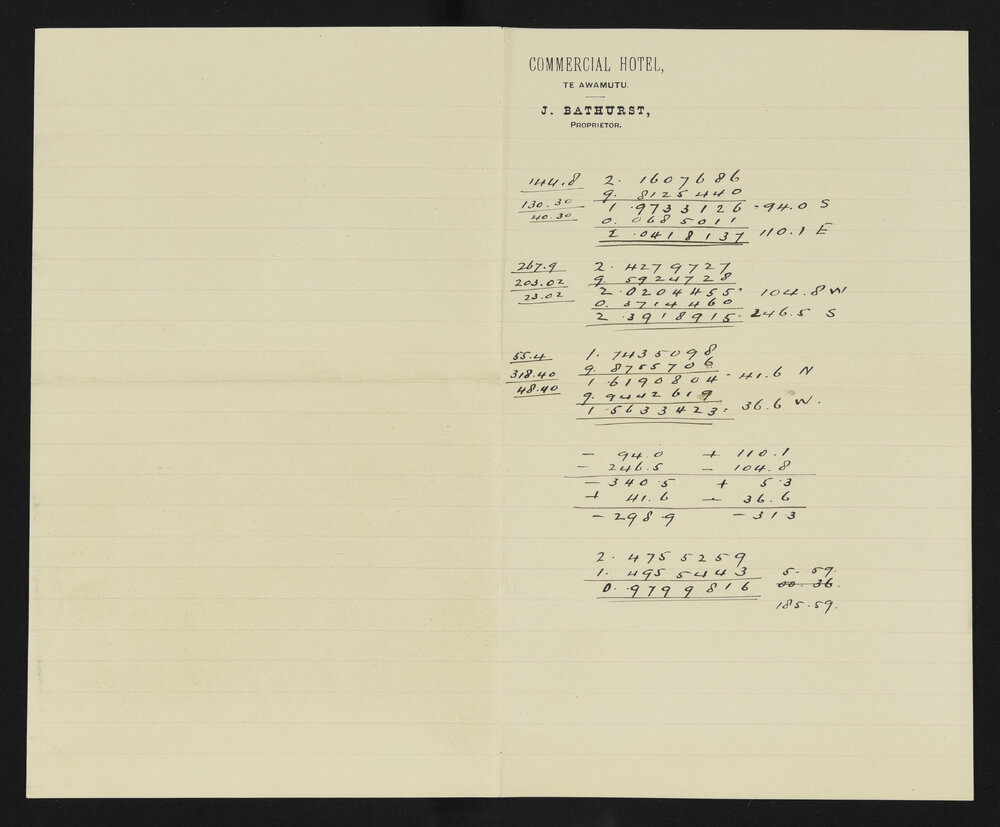 COMMERCIAL HOTEL,
TE AWAMUTU.
J. BATHURST,
PROPRIETOR.
144.8 2. 1607686
9. 8125440
130.30 1 .9733126 - 94.0 S
40.30 0. 0685011
2 .0418137 110.1 E
267.9 2. 4279727
203.02 9. 5924728
23.02 2. 0204455 - 104.8 W
0. 3714460
2 .3918915 - 246.5 S
55.4 1. 7435098
318.40 9. 8755706
48.40 1 .6190804 - 41.6 N
9. 9442619
1 .5633423 - 36.6 W.
- 94.0 + 110.1
- 246.5 - 104.8
- 340.5 + 5.3
+ 41.6 - 36.6
- 298.9 - 31.3
2. 4755259
1. 4955443 5. 59.
0. 9799816 00. 36.
185.59.